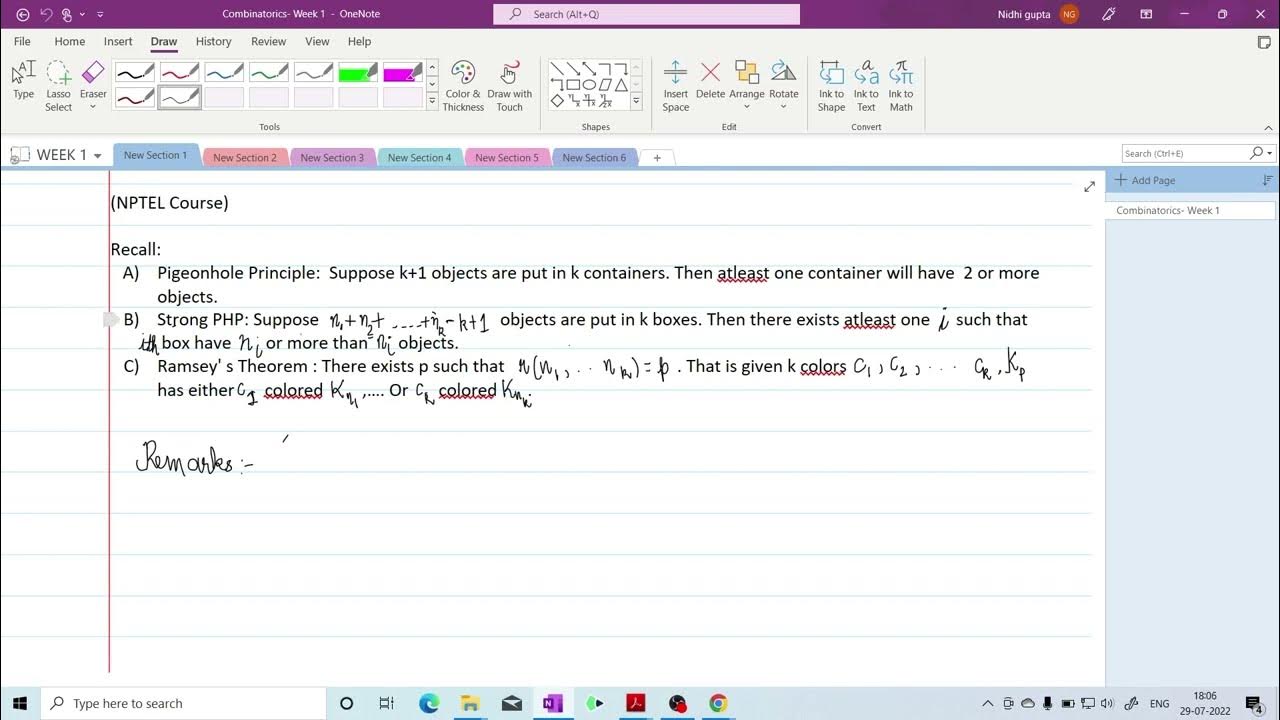 Combinatorics- Week 1 - OneNote
Search (Alt+Q)
Nidhi gupta NG
File Home Insert Draw History Review View Help
Type
Lasso Select
Eraser
Color & Thickness
Draw with Touch
Insert Space
Delete
Arrange
Rotate
Ink to Shape
Ink to Text
Ink to Math
Tools Shapes Edit Convert
WEEK 1 New Section 1 New Section 2 New Section 3 New Section 4 New Section 5 New Section 6 +
Search (Ctrl+E)
Add Page
Combinatorics- Week 1
(NPTEL Course)
Recall:
A) Pigeonhole Principle: Suppose k+1 objects are put in k containers. Then atleast one container will have 2 or more
objects.
B) Strong PHP: Suppose n₁+n₂+ .....+nₖ-k+1 objects are put in k boxes. Then there exists atleast one i such that
ith box have nᵢ or more than nᵢ objects.
C) Ramsey' s Theorem : There exists p such that r(n₁, .. nₖ)=p . That is given k colors c₁, c₂, ... cₖ, Kₚ
has either c₁ colored Kₙ₁,.... Or cₖ colored Kₙₖ.
Remarks:-
Type here to search
ENG
18:06
29-07-2022
4